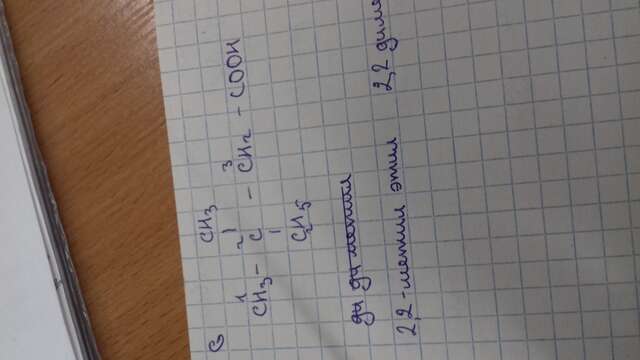 6
CH3
1 2 | 3
CH3 - C - CH2 - COOH
|
C2H5
ди ди метил
2,2-метил этил 2,2 диме